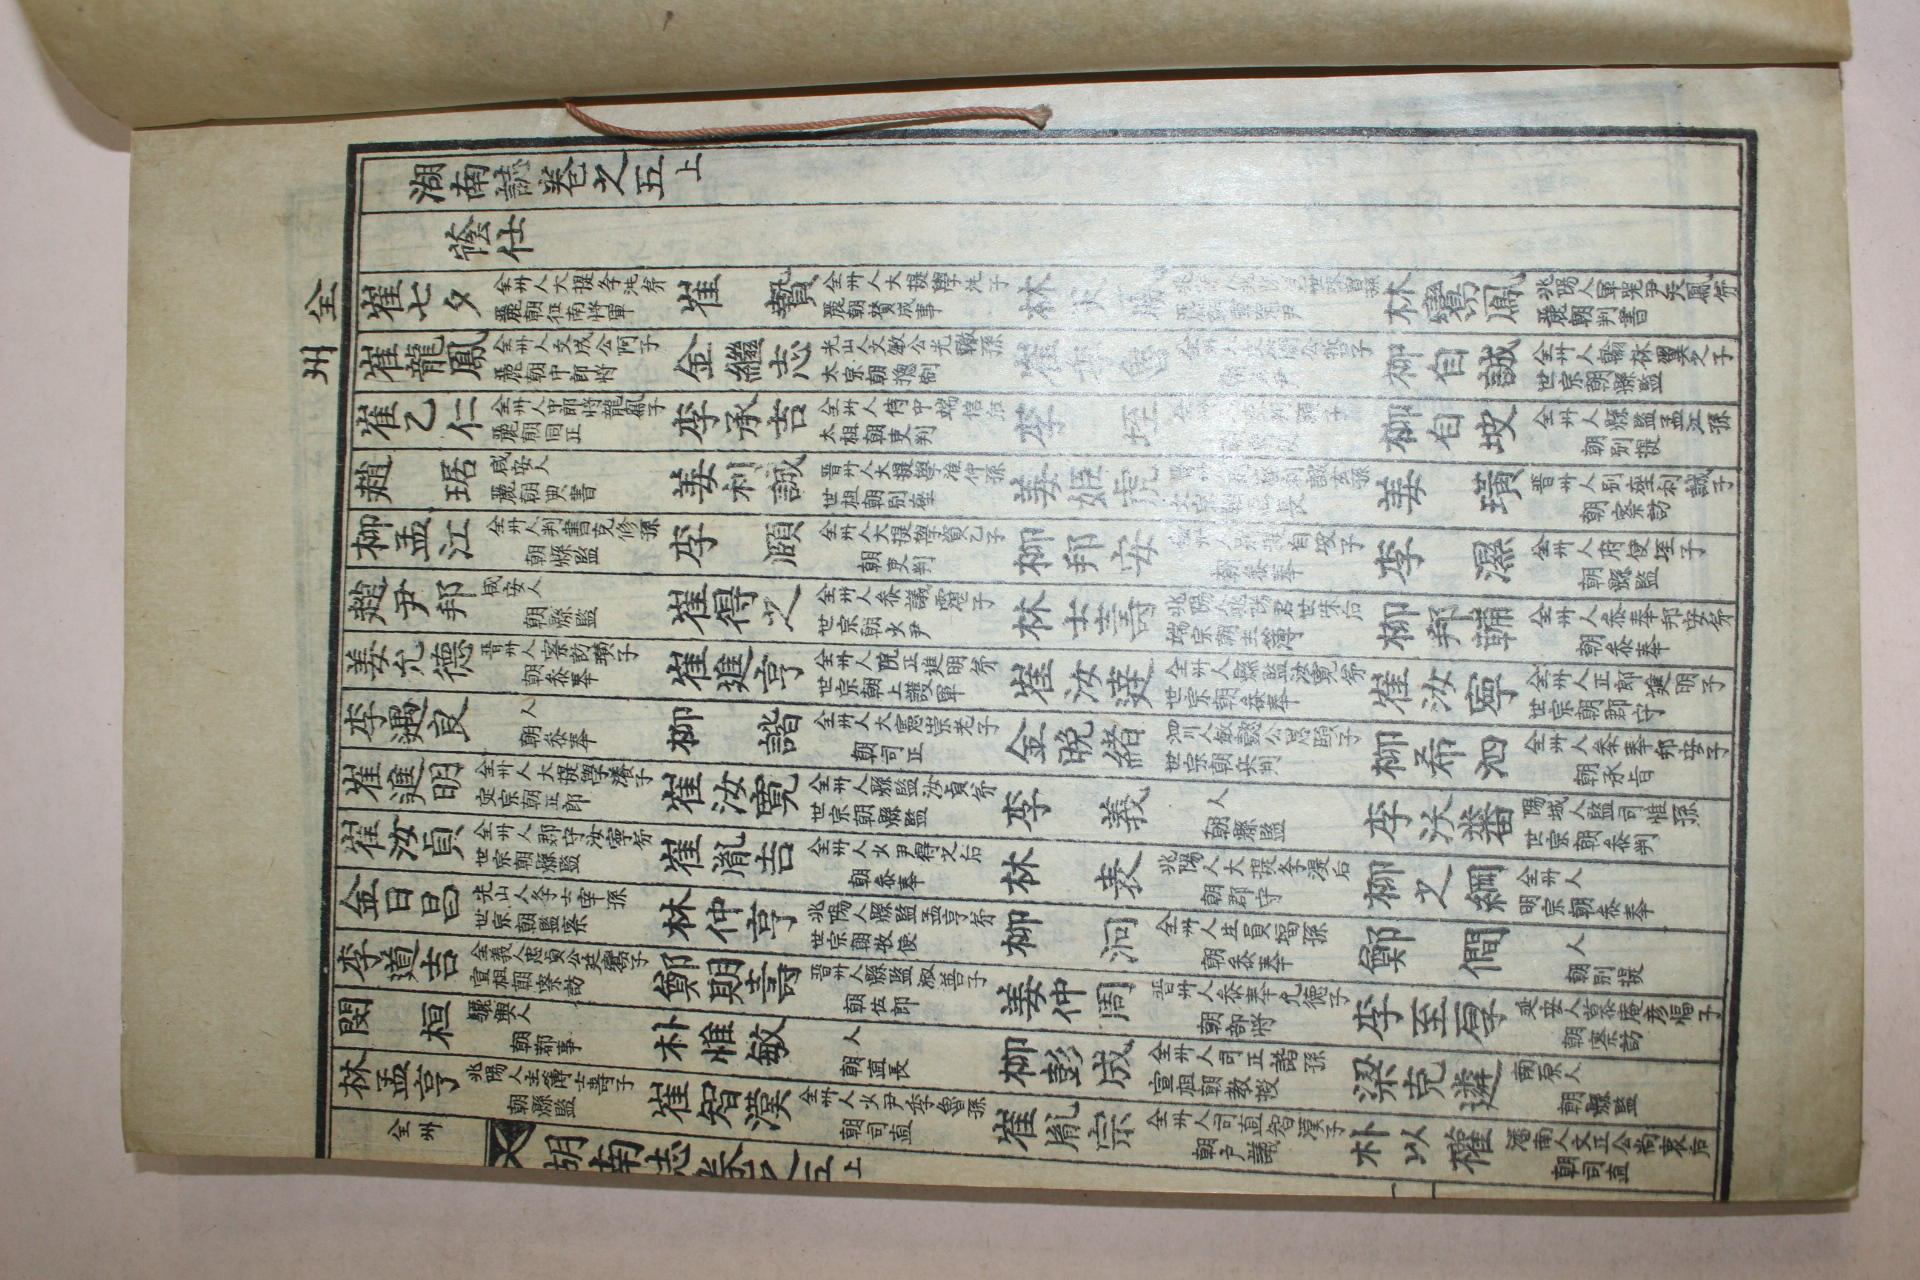 全州
湖南誌卷之五上
蔭仕
崔七夕 全州人大提學洔弟 麗朝征南將軍 崔贄 全州人大提學洔子 麗朝贊成事 林天鳳 林鸞鳳 兆陽人軍器尹天鳳弟 麗朝判書
崔龍鳳 全州人文成公阿子 麗朝中郎將 金繼志 光山人文敏公光轍孫 太宗朝摠制 崔 魯 柳自誠 全州人翰林翼之子 世宗朝縣監
崔乙仁 全州人中郎將龍鳳子 麗朝同正 李承吉 全州人侍中端信后 太祖朝吏判 李垤 柳自坡 全州人縣監孟江孫 朝別提
趙琚 咸安人 麗朝典書 姜利誠 晋州人大提學淮仲孫 世祖朝別座 姜姬虎 姜璜 晋州人別座利誠子 朝察訪
柳孟江 全州人判書克修孫 朝縣監 李頤 全州人大提學資乙子 朝吏判 柳邦安 自坡子 朝叅奉 李濕 全州人府使垤子 朝縣監
趙尹邦 咸安人 朝縣監 崔得之 全州人叅議霮子 世宗朝少尹 林士壽 兆陽人兆陽君世味后 端宗朝主簿 柳邦輔 全州人叅奉邦安弟 朝叅奉
姜允德 晋州人察訪璜子 朝叅奉 崔進亨 全州人院正進明弟 世宗朝上護軍 崔汝達 全州人縣監汝寬弟 世宗朝叅奉 崔汝寧 全州人正郎進明子 世宗朝郡守
李遇良 人 朝叅奉 柳諧 全州人大憲崇老子 朝司正 金晩緖 泗川人敏懿公思頤子 世宗朝兵判 柳希泗 全州人叅奉邦安子 朝承旨
崔進明 全州人大提學瀁子 定宗朝正郎 崔汝寬 全州人縣監汝貞弟 世宗朝縣監 李義 人 朝縣監 李沃蕃 陽城人監司惟孫 世宗朝叅判
崔汝貞 全州人郡守汝寧弟 世宗朝縣監 崔胤吉 全州人少尹得之后 朝叅奉 林表 兆陽人大提學湜后 朝郡守 柳之綱 全州人 明宗朝叅奉
金日昌 光山人學士宰孫 世宗朝監察 林仲亨 兆陽人縣監孟亨弟 世宗朝牧使 柳泂 全州人生員塭孫 朝叅奉 鄭僩 人 朝別提
李道吉 全義人忠貞公廷鸞子 宣祖朝察訪 鄭期壽 晋州人縣監淑善子 朝佐郎 姜仲周 晋州人叅奉允德子 朝部將 李至厚 延安人慕庵彦愊子 朝察訪
閔桓 驪興人 朝都事 朴惟敏 人 朝直長 柳彭成 全州人司正諧孫 宣祖朝教授 梁克遴 南原人 朝縣監
林孟亨 兆陽人主簿士壽子 朝縣監 崔智漢 全州人少尹季魯孫 朝司直 崔胤宗 全州人司直智漢子 朝戶議 朴以權 潘南人文正公尚衷后 朝司直
全州
湖南志卷之五上